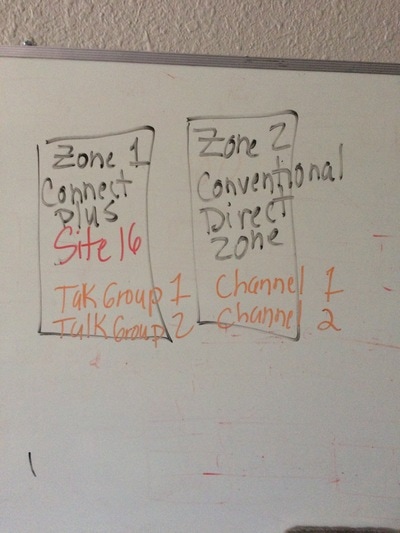 Zone 1
Connect
Plus
Site 16
Tak Group 1
Talk Group 2
Zone 2
Conventional
Direct
Zone
Channel 1
Channel 2